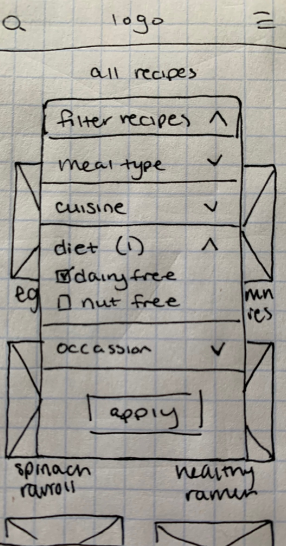 logo
all recipes
filter recipes
meal type
cuisine
diet (1)
dairy free
nut free
occassion
apply
spinach
healthy
ramen